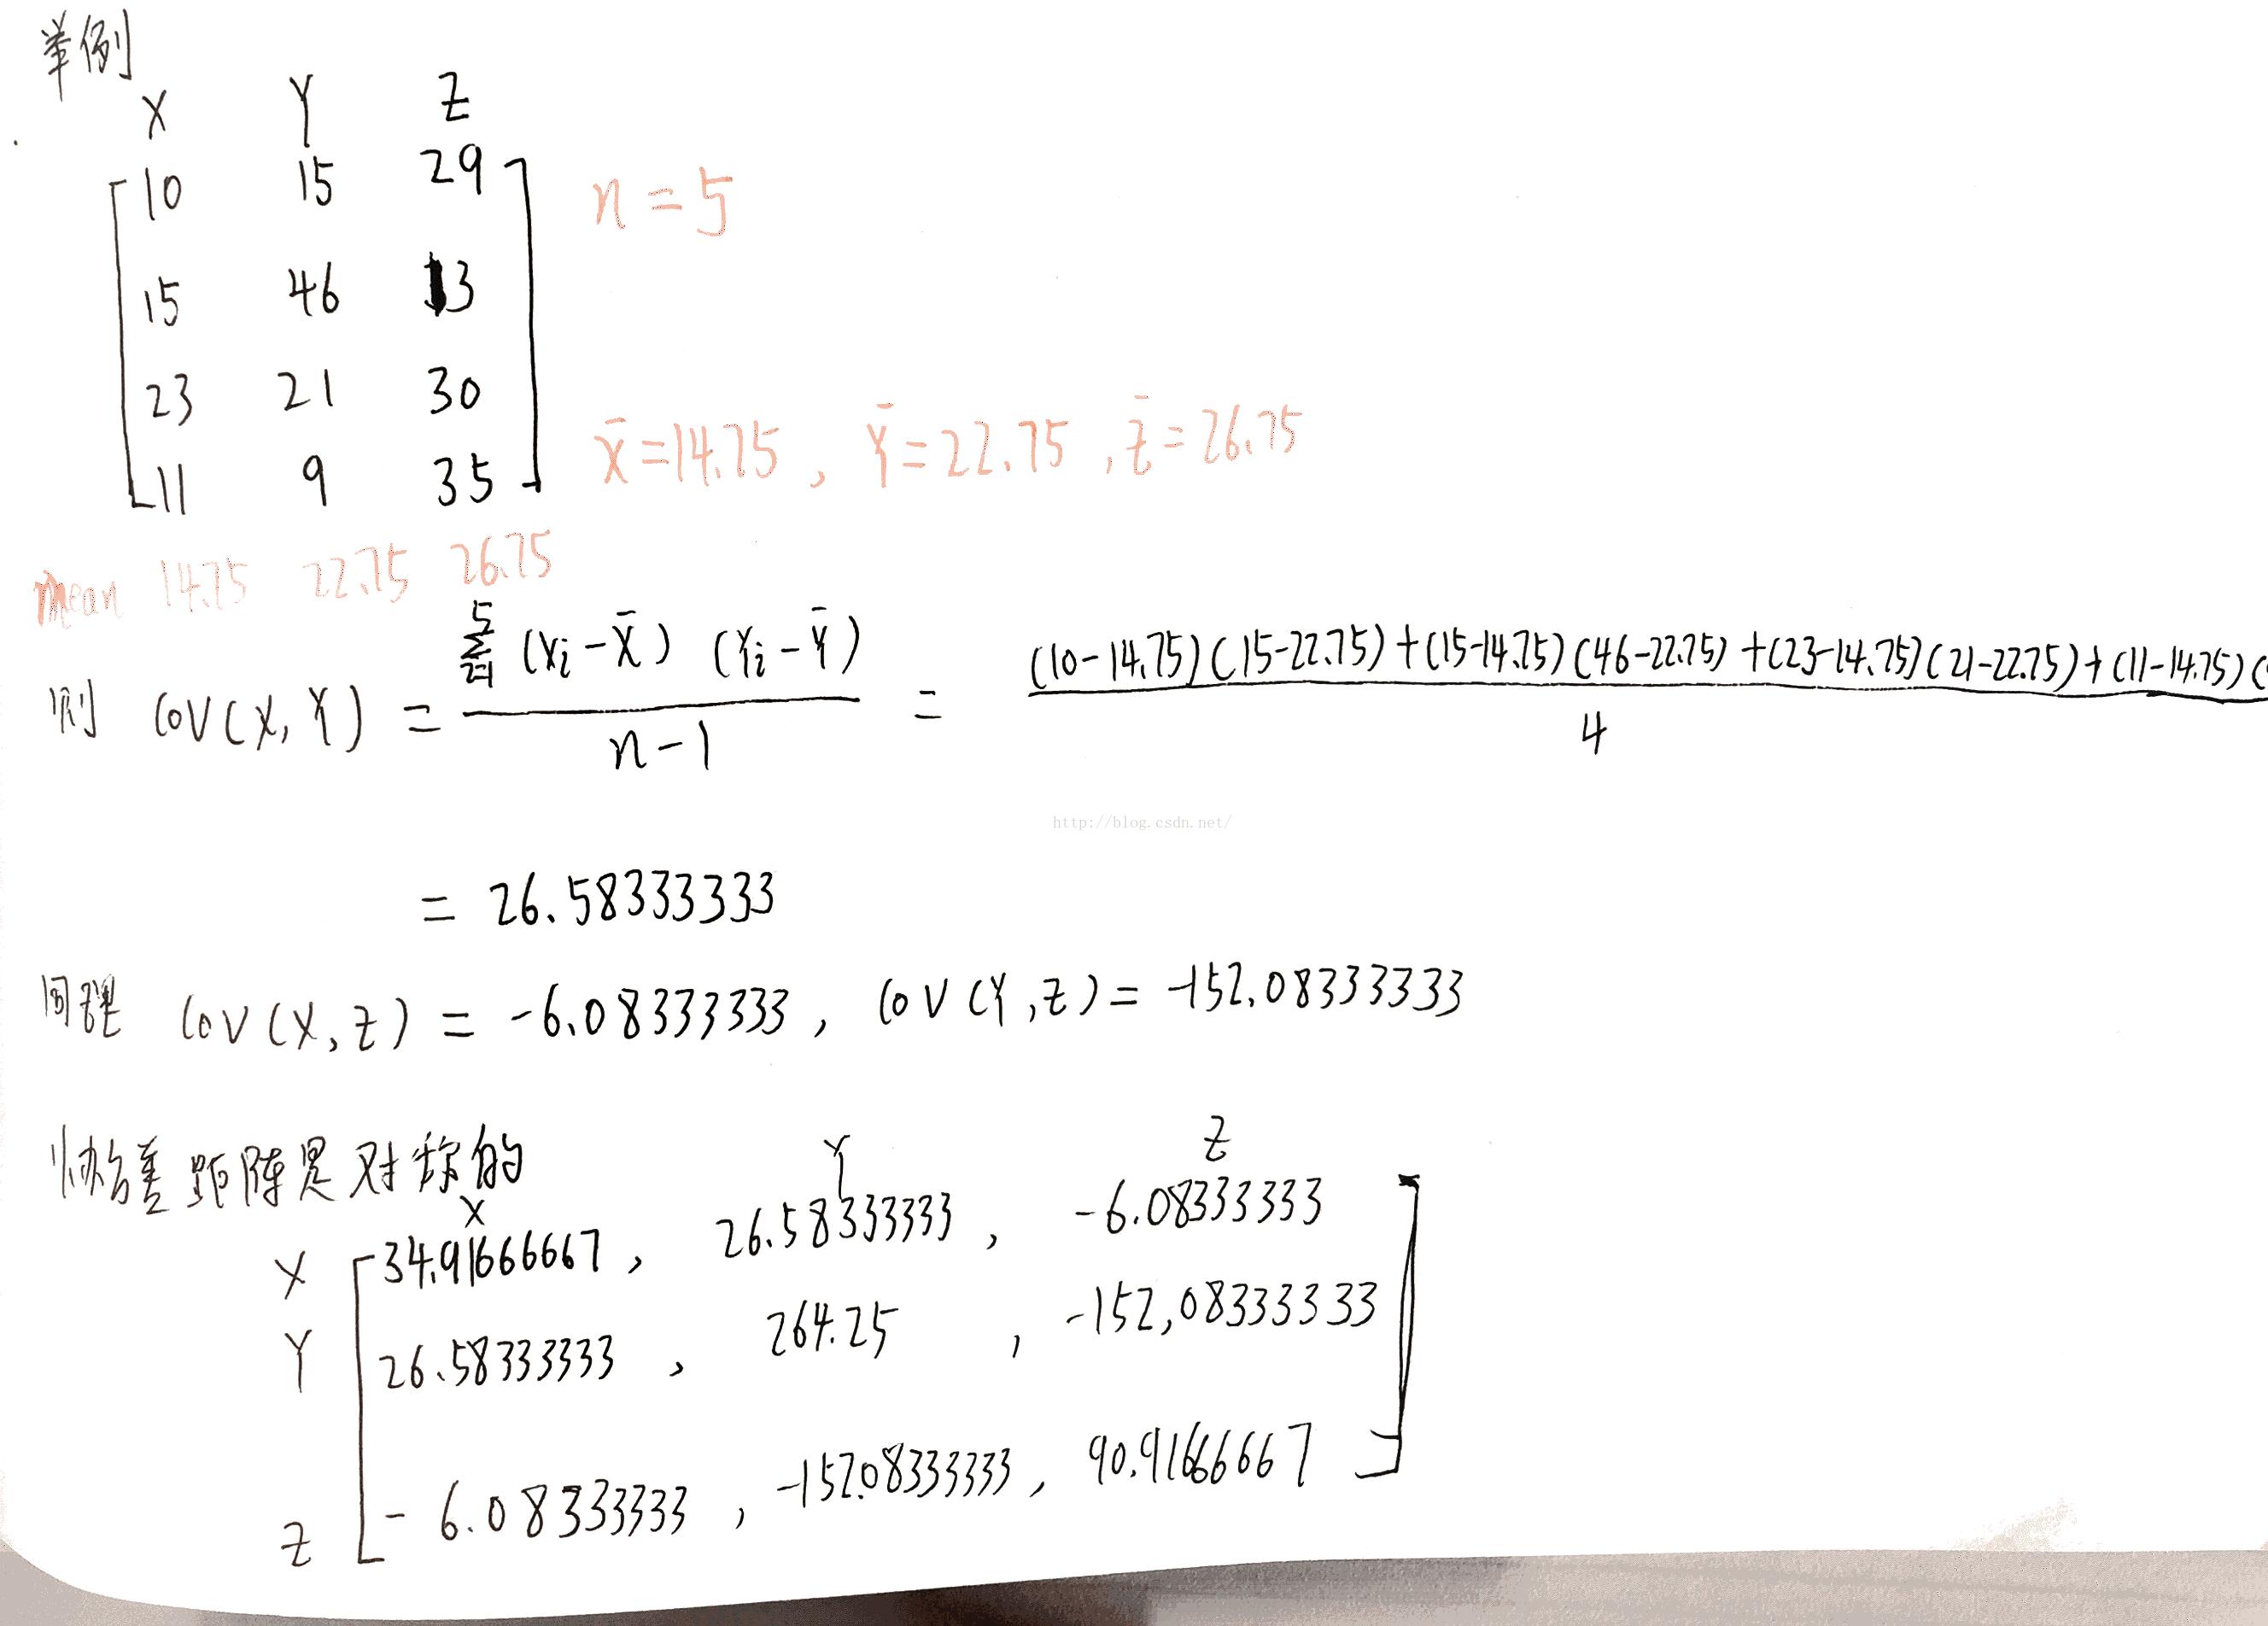 举例
X Y Z
10 15 29
n = 5
15 46 13
23 21 30
X̄ = 14.75 , Ȳ = 22.75 , z̄ = 26.75
11 9 35
mean 14.75 22.75 26.75
则 COV(X,Y) = 5 Σ i=1 (Xi - X̄) (Yi - Ȳ) / n-1 = (10-14.75)(15-22.75)+(15-14.75)(46-22.75)+(23-14.75)(21-22.75)+(11-14.75)( / 4
http://blog.csdn.net/
= 26.58333333
同理 COV(X,Z) = -6.08333333, COV(Y,Z) = -152.08333333
协方差距阵是对称的
X Y Z
X 34.91666667, 26.58333333, -6.08333333
Y 26.58333333, 264.25, -152,08333333
Z -6.08333333, -152.08333333, 90.91666667